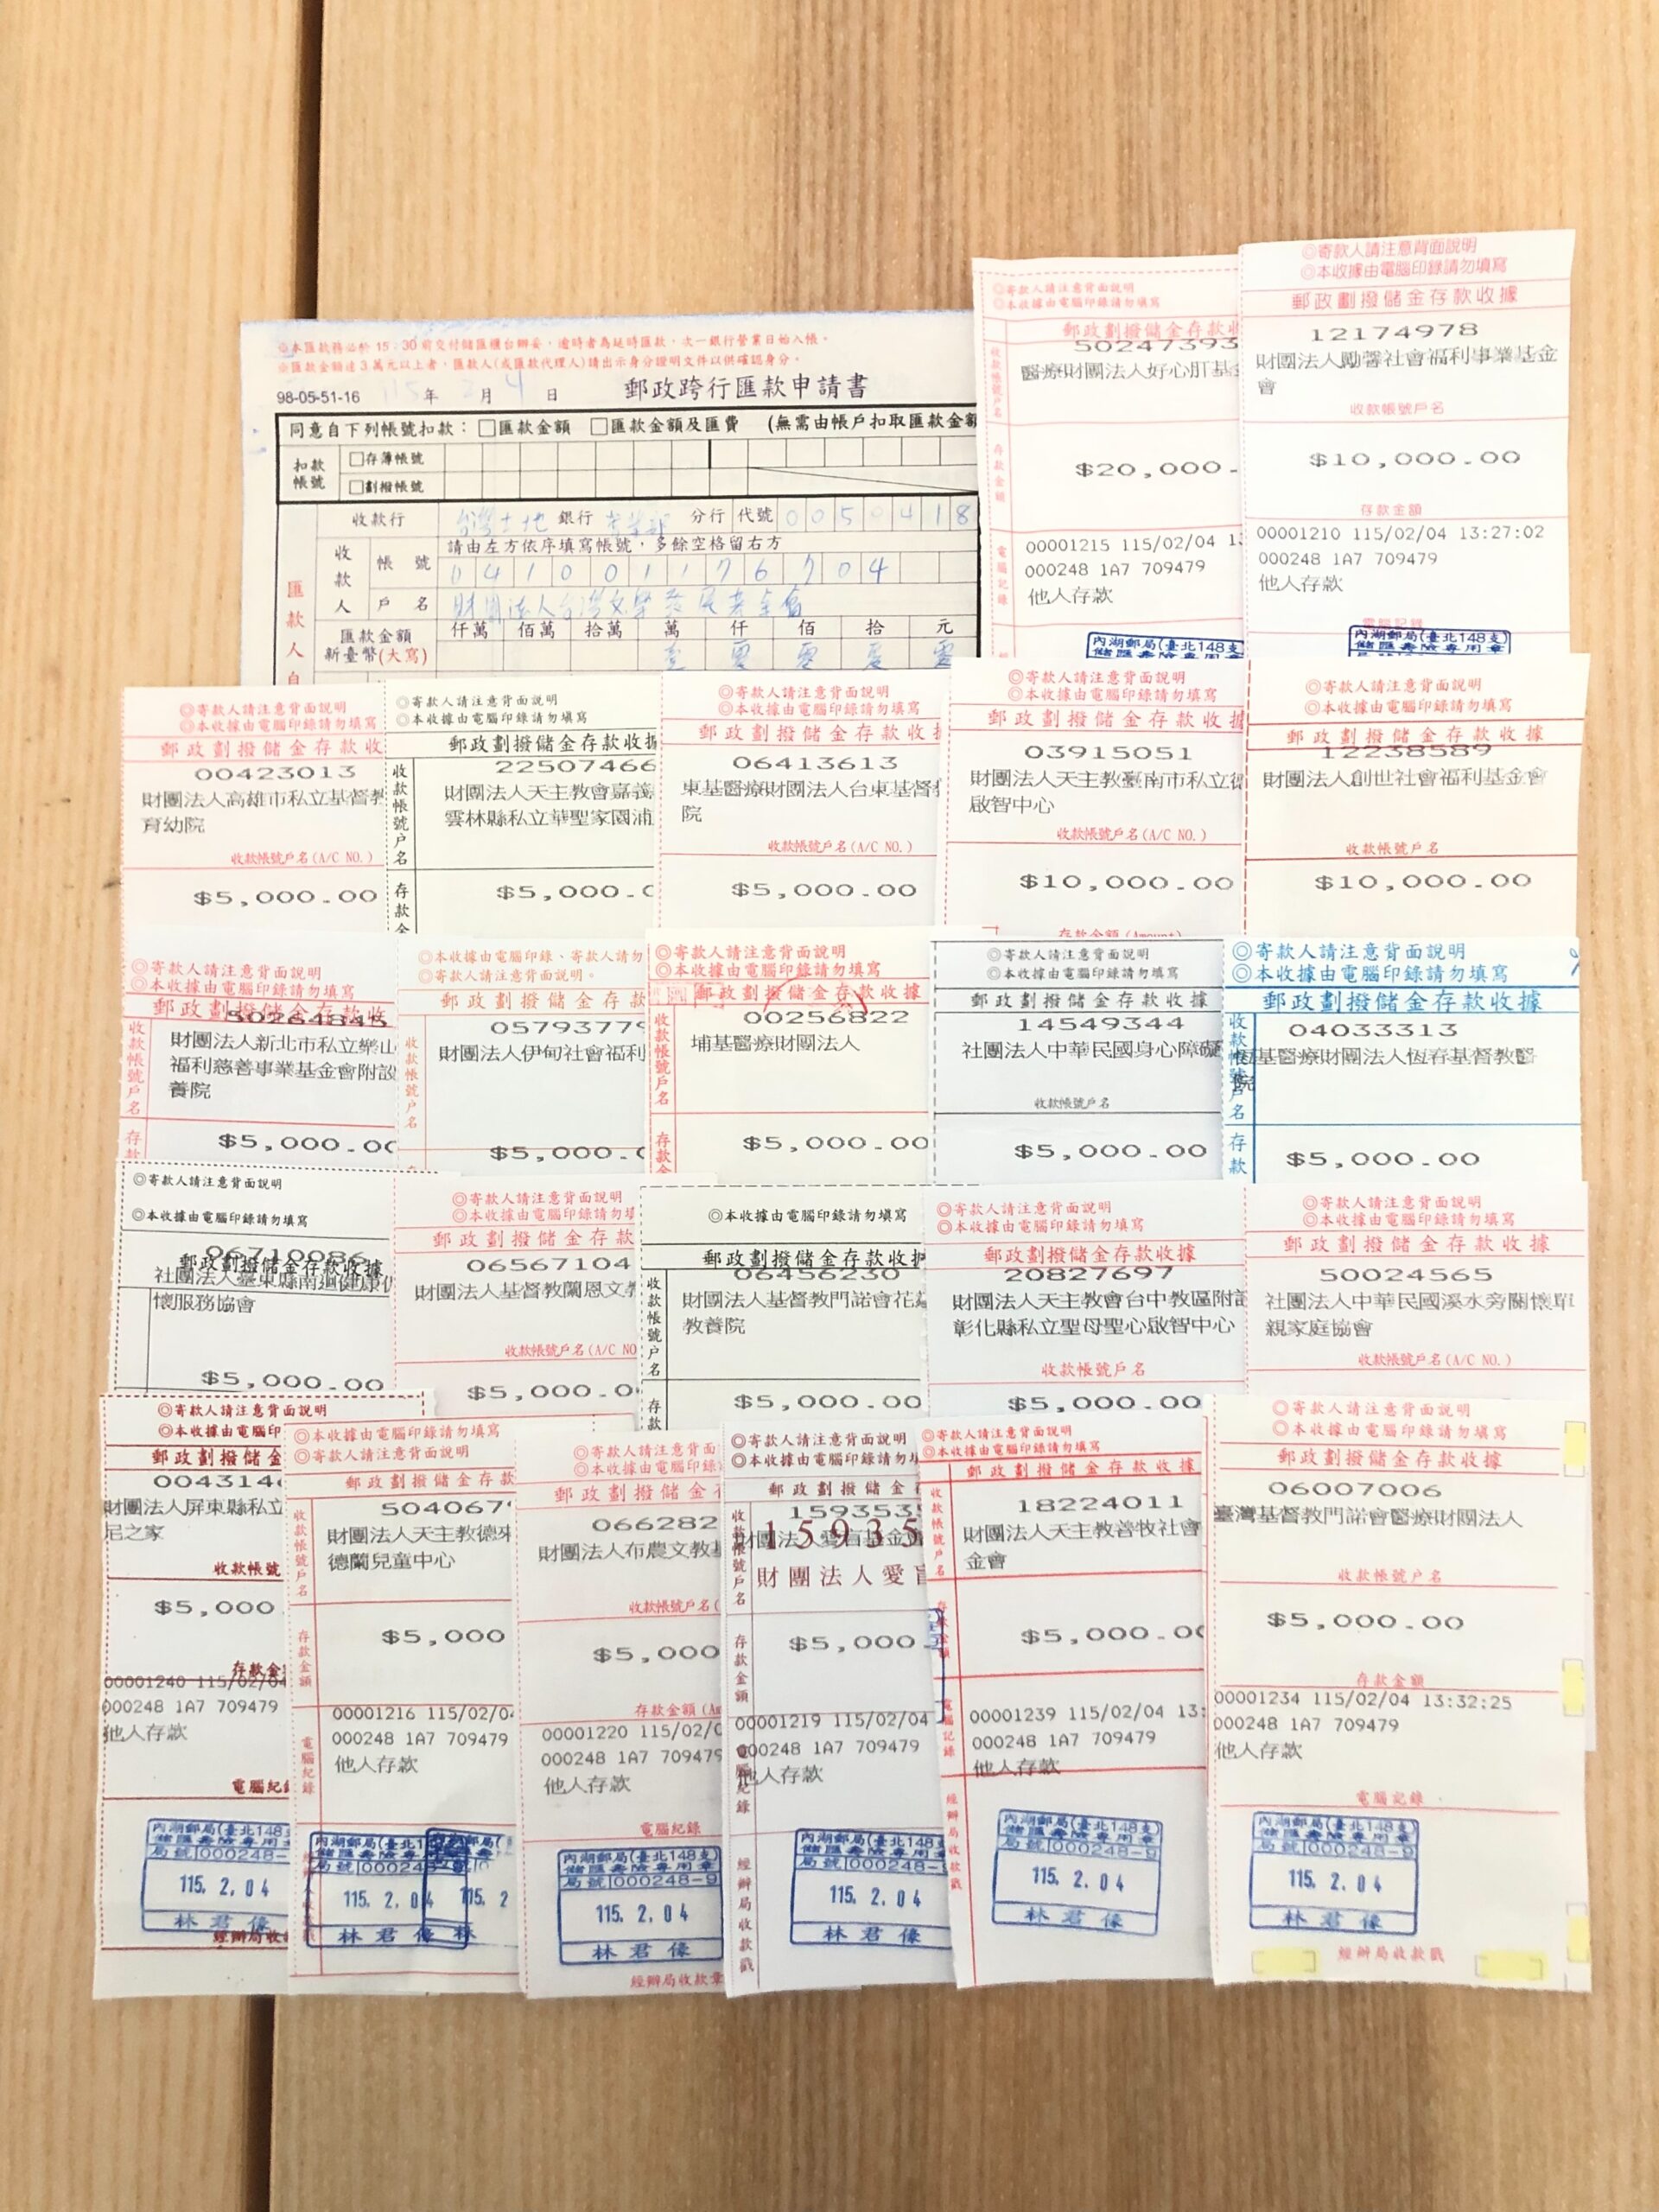 ※本匯款務必於 15:30 前交付儲匯櫃台辦妥,逾時者為延時匯款,次一銀行營業日始入帳。
※匯款金額達3萬元以上者,匯款人(或匯款代理人)請出示身分證明文件以供確認身分。
98-05-51-16 115 年 2 月 4 日 郵政跨行匯款申請書
同意自下列帳號扣款: □匯款金額 □匯款金額及匯費 (無需由帳戶扣取匯款金額
扣款帳號
□存簿帳號
□劃撥帳號
收款行 台灣土地 銀行 營業部 分行 代號 0050418
收款人
請由左方依序填寫帳號,多餘空格留右方
帳號 041001176704
戶名 財團法人台灣文學發展基金會
匯款金額 仟萬 佰萬 拾萬 萬 仟 佰 拾 元
新臺幣(大寫) 壹 零 零 零 零
匯款人
◎寄款人請注意背面說明
◎本收據由電腦印錄請勿填寫
郵政劃撥儲金存款收
50247393
收款帳號戶名
醫療財團法人好心肝基金
存款金額
$20,000.
電腦記錄
00001215 115/02/04 13
000248 1A7 709479
他人存款
內湖郵局(臺北148支)
儲匯壽險專用章
◎寄款人請注意背面說明
◎本收據由電腦印錄請勿填寫
郵政劃撥儲金存款收據
12174978
財團法人勵馨社會福利事業基金
會
收款帳號戶名
$10,000.00
存款金額
00001210 115/02/04 13:27:02
000248 1A7 709479
他人存款
電腦記錄
內湖郵局(臺北148支)
儲匯壽險專用章
◎寄款人請注意背面說明
◎本收據由電腦印錄請勿填寫
郵政劃撥儲金存款收
00423013
財團法人高雄市私立基督教
育幼院
收款帳號戶名(A/C NO.)
$5,000.00
◎寄款人請注意背面說明
◎本收據由電腦印錄請勿填寫
郵政劃撥儲金存款收據
22507466
收款帳號戶名
財團法人天主教會嘉義
雲林縣私立華聖家園浦
存款金
$5,000.0
◎寄款人請注意背面說明
◎本收據由電腦印錄請勿填寫
郵政劃撥儲金存款收
06413613
東基醫療財團法人台東基督
院
收款帳號戶名(A/C NO.)
$5,000.00
◎寄款人請注意背面說明
◎本收據由電腦印錄請勿填寫
郵政劃撥儲金存款收據
03915051
財團法人天主教臺南市私立德
啟智中心
收款帳號戶名(A/C NO.)
$10,000.00
存款金額(Amount)
◎寄款人請注意背面說明
◎本收據由電腦印錄請勿填寫
郵政劃撥儲金存款收據
12238589
財團法人創世社會福利基金會
收款帳號戶名
$10,000.00
◎寄款人請注意背面說明
◎本收據由電腦印錄請勿填寫
郵政劃撥儲金存款收
50264845
收款帳號戶名
財團法人新北市私立樂山
福利慈善事業基金會附設
養院
存款
$5,000.00
◎本收據由電腦印錄、寄款人請勿
◎寄款人請注意背面說明。
郵政劃撥儲金存款
05793779
收款帳號戶名
財團法人伊甸社會福利
$5,000.
◎寄款人請注意背面說明
◎本收據由電腦印錄請勿填寫
郵政劃撥儲金存款收據
00256822
收款帳號戶名
埔基醫療財團法人
存款金
$5,000.00
◎寄款人請注意背面說明
◎本收據由電腦印錄請勿填寫
郵政劃撥儲金存款收據
14549344
社團法人中華民國身心障礙
收款帳號戶名
$5,000.00
◎寄款人請注意背面說明
◎本收據由電腦印錄請勿填寫
郵政劃撥儲金存款收據
04033313
收款帳號戶名
恆基醫療財團法人恆春基督教醫
院
存款
$5,000.00
◎寄款人請注意背面說明
◎本收據由電腦印錄請勿填寫
郵政劃撥儲金存款收據
06710086
社團法人臺東縣南迴健康
懷服務協會
$5,000.00
◎寄款人請注意背面說明
◎本收據由電腦印錄請勿填
郵政劃撥儲金存款收
06567104
財團法人基督教蘭恩文教
收款帳號戶名(A/C NO.)
$5,000.0
◎本收據由電腦印錄請勿填寫
郵政劃撥儲金存款收據
06456230
收款帳號戶名
財團法人基督教門諾會花蓮
教養院
存款
$5,000.00
◎寄款人請注意背面說明
◎本收據由電腦印錄請勿填寫
郵政劃撥儲金存款收據
20827697
財團法人天主教會台中教區附設
彰化縣私立聖母聖心啟智中心
收款帳號戶名
$5,000.00
◎寄款人請注意背面說明
◎本收據由電腦印錄請勿填寫
郵政劃撥儲金存款收據
50024565
社團法人中華民國溪水旁關懷單
親家庭協會
收款帳號戶名(A/C NO.)
◎寄款人請注意背面說明
◎本收據由電腦印
郵政劃撥儲金
004314
財團法人屏東縣私立
尼之家
收款帳號
$5,000
存款金
00001240 115/02/04
000248 1A7 709479
他人存款
電腦紀錄
內湖郵局(臺北148支)
儲匯壽險專用章
局號000248-
115. 2. 04
林君像
經辦局收
◎本收據由電腦印錄請勿填寫
◎寄款人請注意背面說明
郵政劃撥儲金存款
504067
收款帳號戶名
財團法人天主教德來
德蘭兒童中心
存款金額
$5,000
電腦紀錄
00001216 115/02/04
000248 1A7 709479
他人存款
內湖郵局(臺北
儲匯壽險專用章
局號000248
115. 2. 04
林君像
115. 2
林
◎寄款人請注意背面
◎本收據由電腦印錄請
郵政劃撥儲金
066282
財團法人布農文教基
收款帳號戶名(
$5,000
存款金額(Am
00001220 115/02/0
000248 1A7 709479
他人存款
電腦紀錄
內湖郵局(臺北148支)
儲匯壽險專用章
局號000248-9
115. 2. 04
林君像
經辦局收款章
◎寄款人請注意背面說明
◎本收據由電腦印錄請勿
郵政劃撥儲金
1593535
15935
收款帳號戶名
財團法人愛盲基金會
財團法人愛盲
存款金額
$5,000
電腦紀錄
00001219 115/02/04
000248 1A7 709479
他人存款
經辦局收款戳
內湖郵局(臺北148支
儲匯壽險專用章
局號000248-
115. 2. 04
林君像
◎寄款人請注意背面說明
◎本收據由電腦印錄請勿填寫
郵政劃撥儲金存款收據
18224011
收款帳號戶名
財團法人天主教善牧社會
金會
存款金額
$5,000.00
電腦記錄
00001239 115/02/04 13:
000248 1A7 709479
他人存款
經辦局收款戳
內湖郵局(臺北148支)
儲匯壽險專用章
局號000248-9
115. 2. 04
林君像
◎寄款人請注意背面說明
◎本收據由電腦印錄請勿填寫
郵政劃撥儲金存款收據
06007006
臺灣基督教門諾會醫療財團法人
收款帳號戶名
$5,000.00
存款金額
00001234 115/02/04 13:32:25
000248 1A7 709479
他人存款
電腦記錄
內湖郵局(臺北148支)
儲匯壽險專用章
局號000248-9
115. 2. 04
林君像
經辦局收款戳